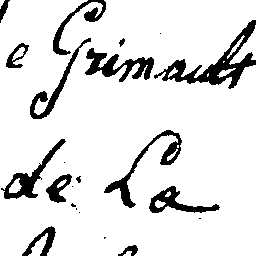 e Grimault
de La